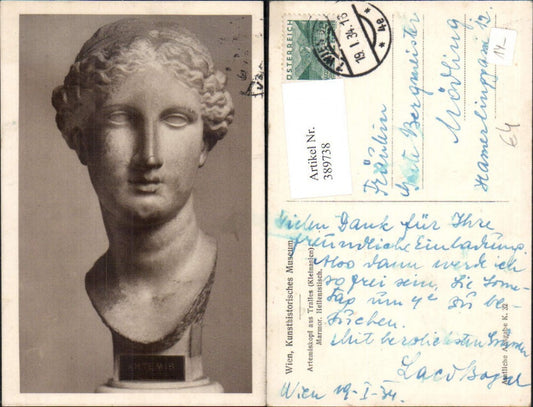 ARTEMIS
ÖSTERREICH
WIEN
19.I.34.15
* 4e *
14.-
64
Artikel Nr.
389738
Fräulein
Bergmeister
Mödling
Hamerlinggasse 12.
Vielen Dank für Ihre
freundliche Einladung.
Also dann werde ich
so frei sein, Sie Sonn-
tag um 4h zu be-
suchen.
Mit herzlichsten Grüssen
Wien 19-I-34.
Wien, Kunsthistorisches Museum
Artemiskopf aus Tralles (Kleinasien)
Marmor. Hellenistisch.
Amtliche Ausgabe K. 32